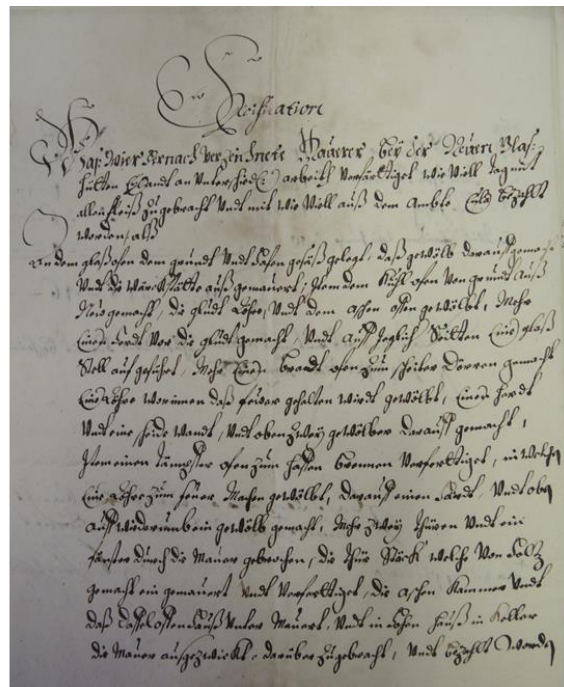 Specification
Waß Wier Hernach verzeichnete Maurer bey der Neuen Glaß-
hütten Handt an Unterschiedl: arbeith verfertiget wie viell tag mit
allen fleiß zugebracht Undt mit wie Viell auß dem Ambte bezahlt
worden, alß
An dem glaßofen dem grundt Undt Hafen gesäß gelegt, daß gewölb darauff gemacht
Undt die Wärckstätte auß gemauert; Item dem Kühl ofen Von grundt auß
Neu gemacht, die gludt Röhre, Undt dem aschen offen gewölbt, Mehr
Einen Herdt Vor die gludt gemacht, Undt auff Jeglich Seithen Eine glaß
Stell auf geführt, Mehr Einen brandt ofen zum scheiter Dörren gemacht
Eine Röhre worinnen daß feuer gehalten wirdt gewölbt, Einen herdt
Undt eine scheide wandt, Undt oben Zwey gewölber darauff gemacht,
Item einen ofen zum haffen brennen Verfertiget, in welchen
Eine Röhre zum feuer Machen gewölbt, darauff einen Herdt, Undt oben
auff wiederumb ein gewölb gemacht, Mehr Zwey thüren Undt ein
fenster durch die Mauer gebrochen, die thür Stöck welche Von Holtz
gemacht ein gemauert Undt Verfertiget, die aschen Kammer Undt
daß Hauß Unter Mauert, Undt in Hauß in Keller
die Mauer außgezwickt, darüber zugebracht, Undt bezahlt Worden